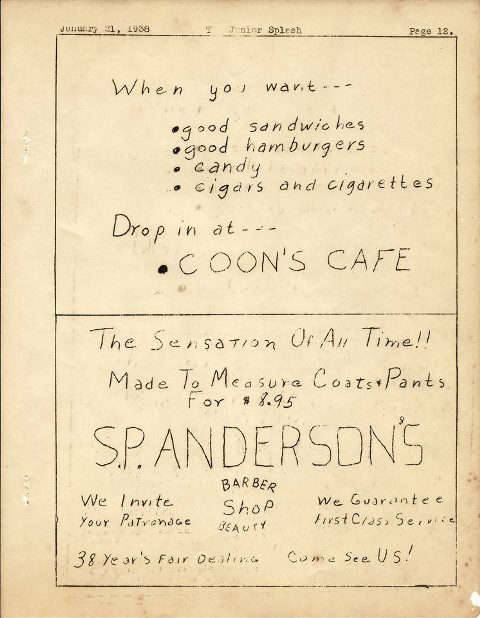 January 21, 1938 T Junior Splash Page 12.
When you want---
•good sandwiches
•good hamburgers
• candy
• cigars and cigarettes
Drop in at---
•COON'S CAFE
The Sensation Of All Time!!
Made To Measure Coats & Pants
For $8.95
S.P. ANDERSON'S
BARBER
We Invite Shop We Guarantee
Your Patronage BEAUTY First Class Service
38 Year's Fair Dealing Come See US!